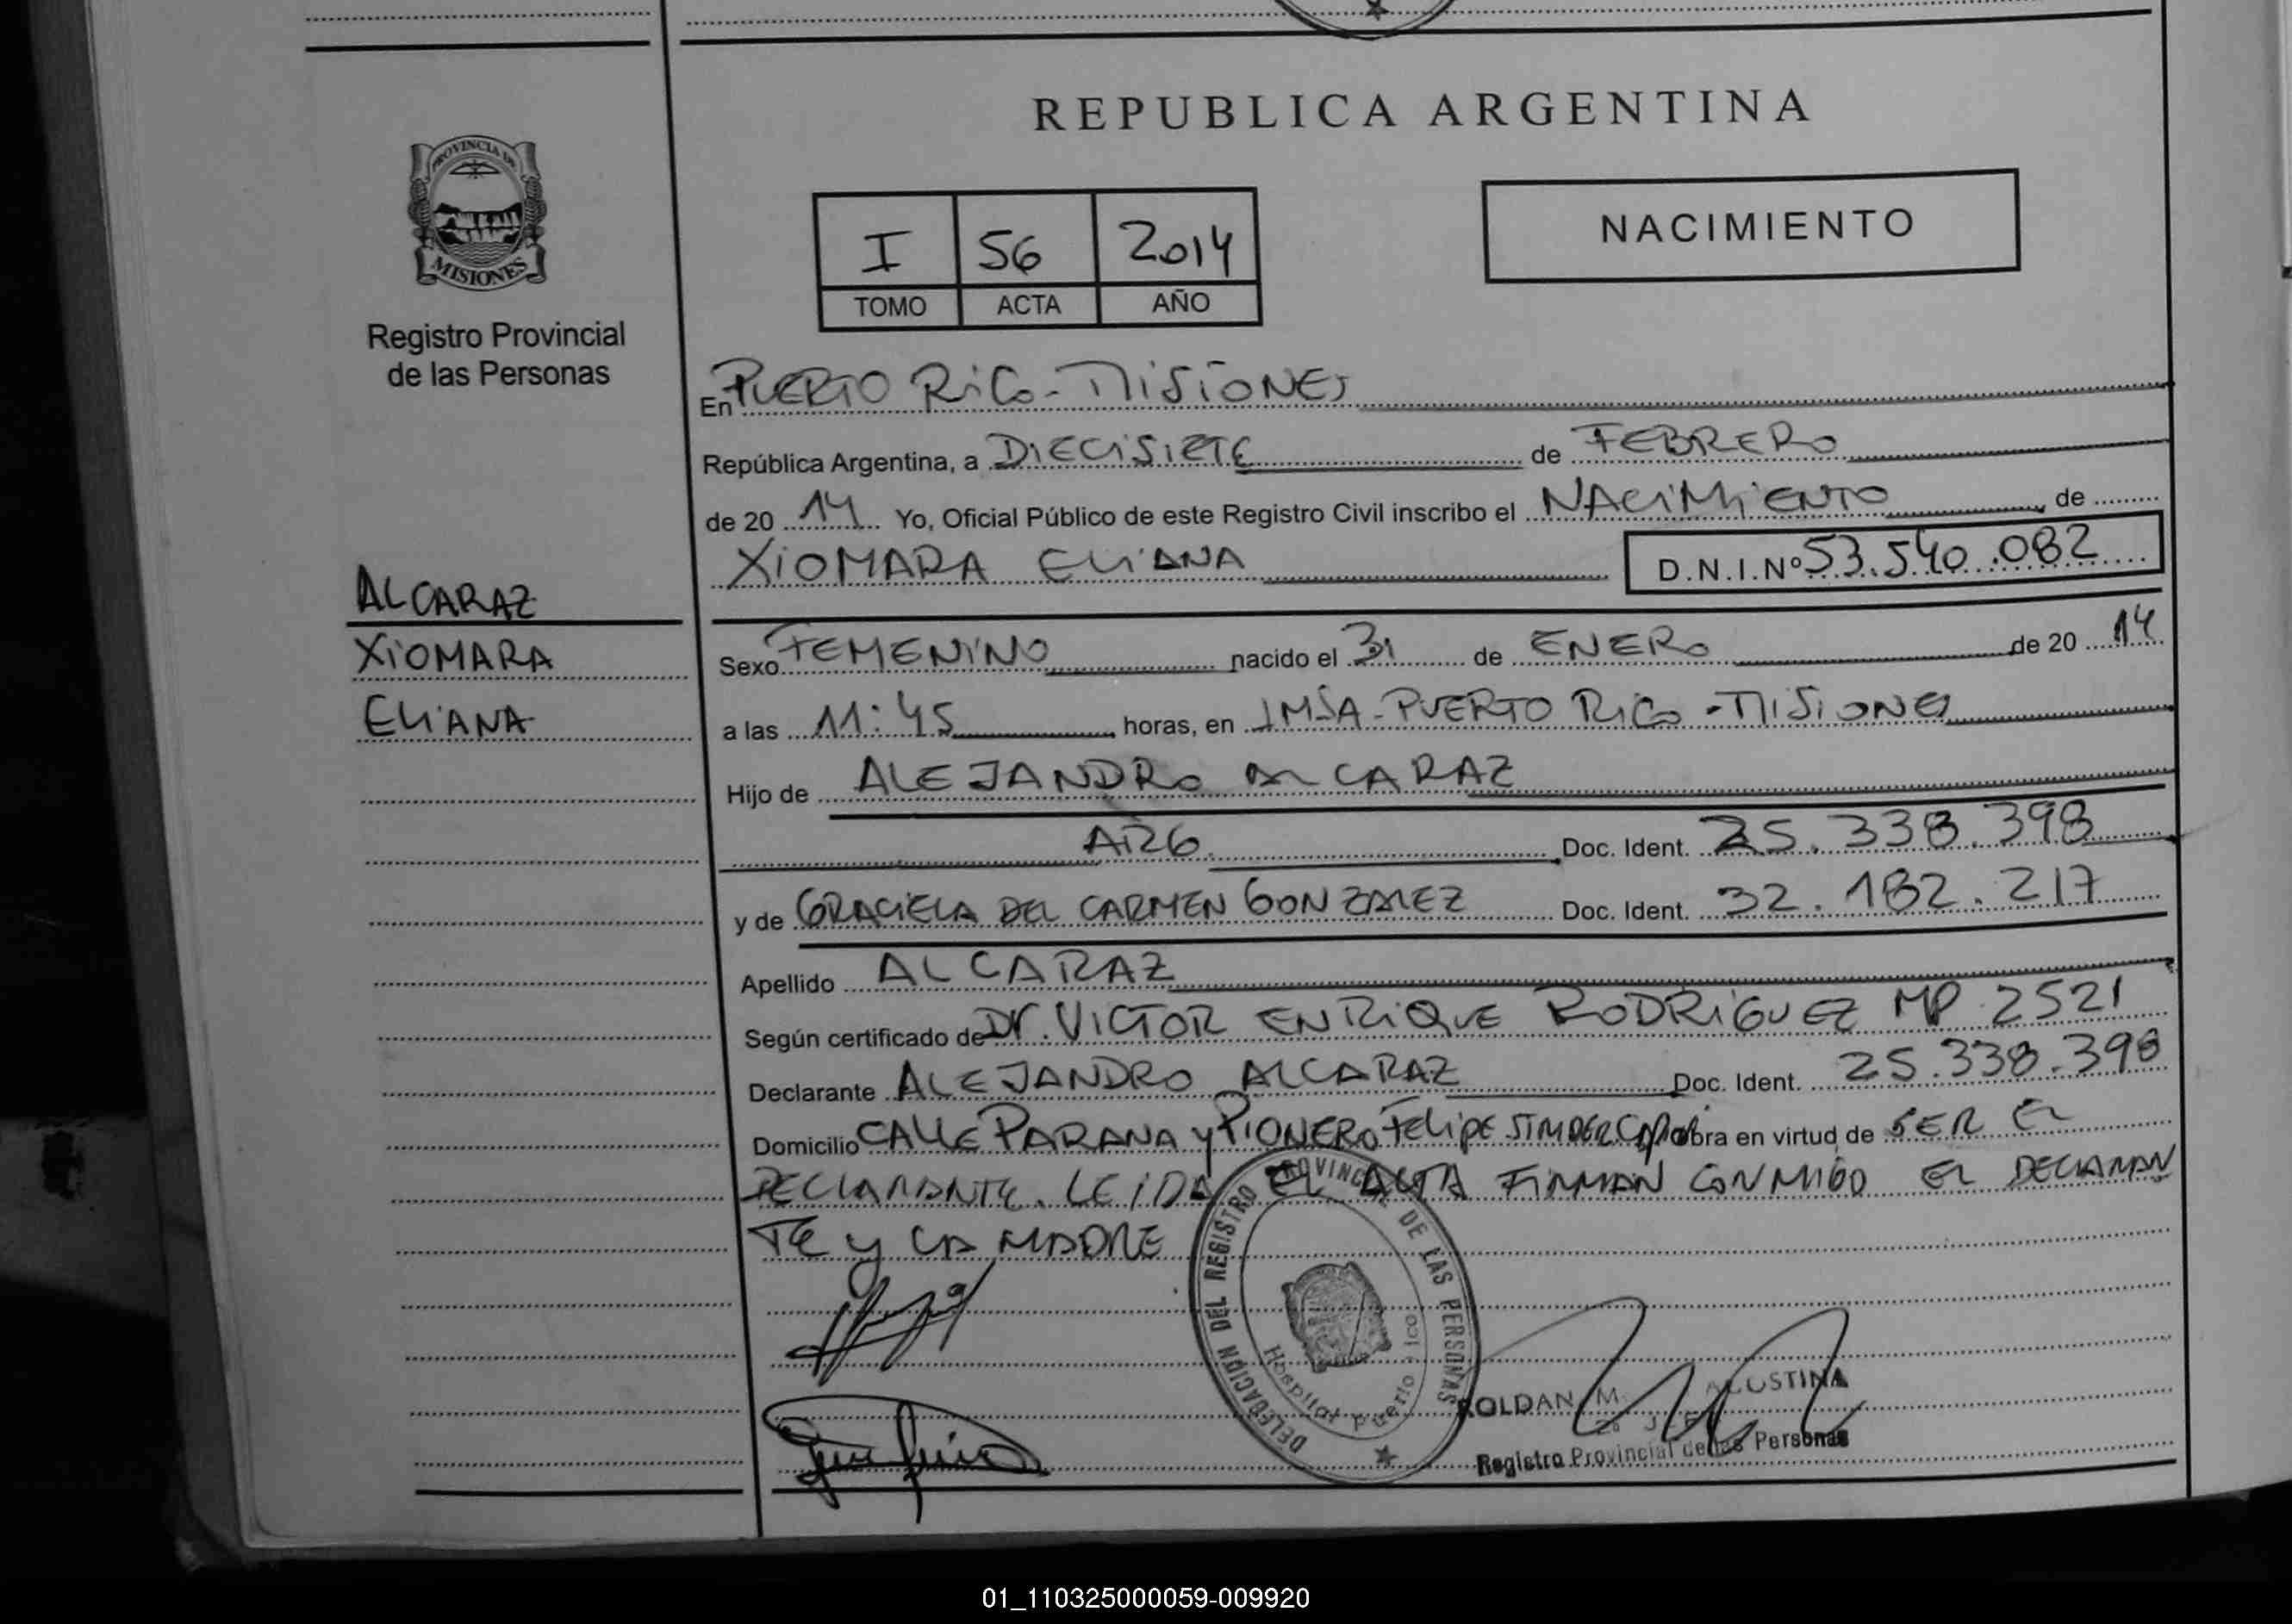 REPUBLICA ARGENTINA
PROVINCIA DE
MISIONES
Registro Provincial
de las Personas
NACIMIENTO
I 56 2014
TOMO ACTA AÑO
En PUERTO RICO - MISIONES
República Argentina, a DIECISIETE de FEBRERO
de 20 14 Yo, Oficial Público de este Registro Civil inscribo el NACIMIENTO de
XIOMARA ELIANA D.N.I.Nº 53.540.082
ALCARAZ
XIOMARA
ELIANA
Sexo FEMENINO nacido el 31 de ENERO de 20 14
a las 11:45 horas, en IMSA - PUERTO RICO - MISIONES
Hijo de ALEJANDRO ALCARAZ
ARG. Doc. Ident. 25.338.398
y de GRACIELA DEL CARMEN GONZALEZ Doc. Ident. 32.182.217
Apellido ALCARAZ
Según certificado de Dr. VICTOR ENRIQUE RODRIGUEZ MP 2521
Declarante ALEJANDRO ALCARAZ Doc. Ident. 25.338.398
Domicilio CALLE PARANA y PIONERO FELIPE obra en virtud de SER EL
DECLARANTE. LEIDA EL ACTA FIRMAN CONMIGO EL DECLARAN
TE y LA MADRE
DELEGACION DEL REGISTRO PROVINCIAL DE LAS PERSONAS
Hospital Puerto Rico
ROLDAN, M. AGOSTINA
Registro Provincial de las Personas
01_110325000059-009920